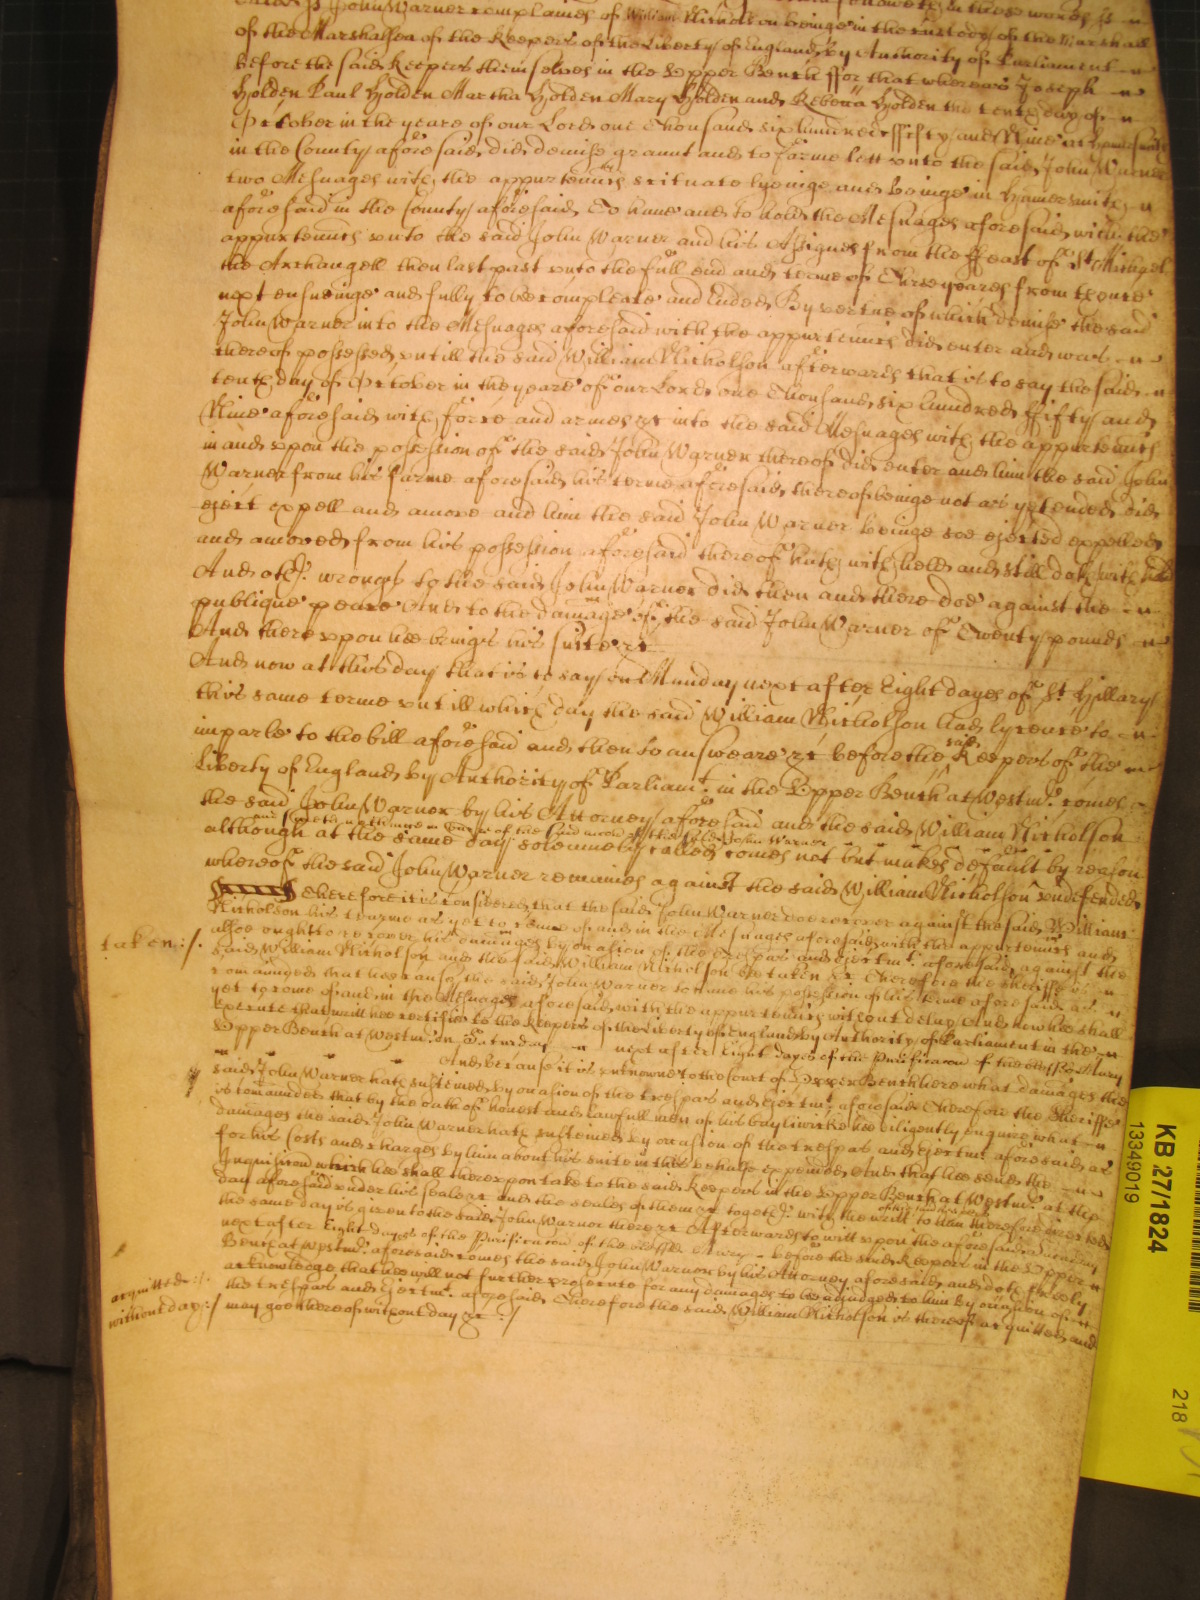 John Warner complaines of William Nicholson beinge in the custody of the Marshall
of the Marshalsea of the Keepers of the Liberty of England by Authority of Parliament
before the said Keepers themselves in the Upper Bench ffor that whereas Joseph
Holden Paul Holden Martha Holden Mary Holden and Rebecca Holden the tenth day of
October in the yeare of our Lord one Thousand six hundred ffifty and Nine at Hamersmith
in the County aforesaid did demise graunt and to farme lett unto the said John Warner
two Mesuages with the appurtenncs scituate lyeinge and beinge in Hamersmith
aforesaid in the County aforesaid To have and to hold the Mesuages aforesaid with the
appurtenncs unto the said John Warner and his Assignes from the ffeast of St Michael
the Archangell then last past unto the full end and terme of Three yeares from thence
next ensueinge and fully to be compleate and ended By vertue of which demise the said
John Warner into the Mesuages aforesaid with the appurtenncs did enter and was
thereof possessed untill the said William Nicholson afterwards that is to say the said
tenth day of October in the yeare of our Lord one Thousand six hundred ffifty and
Nine aforesaid with force and armes &c into the said Mesuages with the appurtenncs
in and upon the possession of the said John Warner thereof did enter and him the said John
Warner from his farme aforesaid his terme aforesaid thereof beinge not as yet ended did
eject expell and amove and him the said John Warner beinge soe ejected expelled
and amoved from his possession aforesaid thereof hath with held and still doth with hold
And oth: wrongs to the said John Warner did then and there doe against the
publique peace And to the damage of the said John Warner of Twenty pounds
And thereupon hee brings his suite &c
And now at this day that is to say on Munday next after Eight dayes of St Hillary
this same terme untill which day the said William Nicholson had lycence to
imparle to the bill aforesaid and then to answeare &c before the said Keepers of the
Liberty of England by Authority of Parliamt in the Upper Bench at Westmr comes
the said John Warner by his Attorney aforesaid and the said William Nicholson
although at the same day solemnely called comes not but makes default by reason
whereof the said John Warner remaines against the said William Nicholson undefended
Therefore it is considered that the said John Warner doe recover against the said William
Nicholson his tearme as yet to come of and in the Mesuages aforesaid with the appurtenncs and
taken :/.
said William Nicholson and the said William Nicholson bee taken &c Therefore the Sheriffe is
comaunded that hee cause the said John Warner to have his possession of his terme aforesaid as
yet to come of and in the Mesuages aforesaid with the appurtenncs without delay And how hee shall
execute that writt hee certifie to the Keepers of the Liberty of England by Authority of Parliament in the
Upper Bench at Westmr on Saturday next after Eight dayes of the Purificacon of the blessed Mary
And because it is unknowne to the Court of Upper Bench here what damages the
said John Warner hath susteined by occasion of the trespas and ejectmt aforesaid Therefore the Sheriffe
is comaunded that by the oath of honest and lawfull men of his bayliwicke hee diligently enquire what
damages the said John Warner hath susteined by occasion of the trespas and ejectmt aforesaid as
for his Costs and charges by him about his suite in this behalfe expended And that hee send the
Inquisicon which hee shall thereupon take to the said Keepers in the Upper Bench at Westmr at the
day aforesaid under his seale &c and the seales of them &c togeth: with the writt to them therefore directed
the same day is given to the said John Warner there &c Afterwards to witt upon the aforesaid Saturday
next after Eight dayes of the Purificacon of the blessed Mary before the said Keepers in the Upper
Bench at Westmr aforesaid comes the said John Warner by his Attorney aforesaid and doth freely
acknowledge that hee will not further prosecute for any damages to be adjudged to him by occasion of
acquitted :/.
the trespas and Ejectmt aforesaid Therefore the said William Nicholson is thereof acquitted and
without day :/
may goe thereof without day &c :/
KB 27/1824
13349019
218